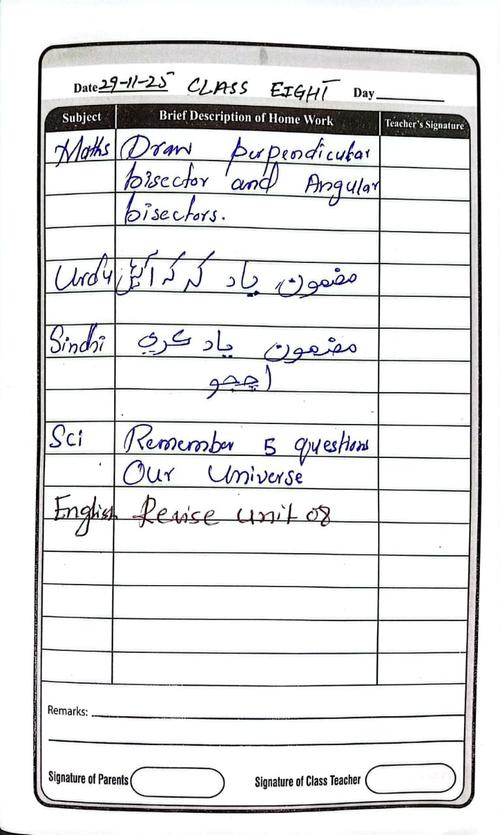 Date 29-11-25 CLASS EIGHT Day
Subject Brief Description of Home Work Teacher's Signature
Maths Draw perpendicular
bisector and Angular
bisectors.
Urdu مضمون یاد کر کہ آئیں
Sindhi مضمون ياد ڪري
اچجو
Sci Remember 5 questions
Our Universe
English Revise Unit 08
Remarks:
Signature of Parents Signature of Class Teacher